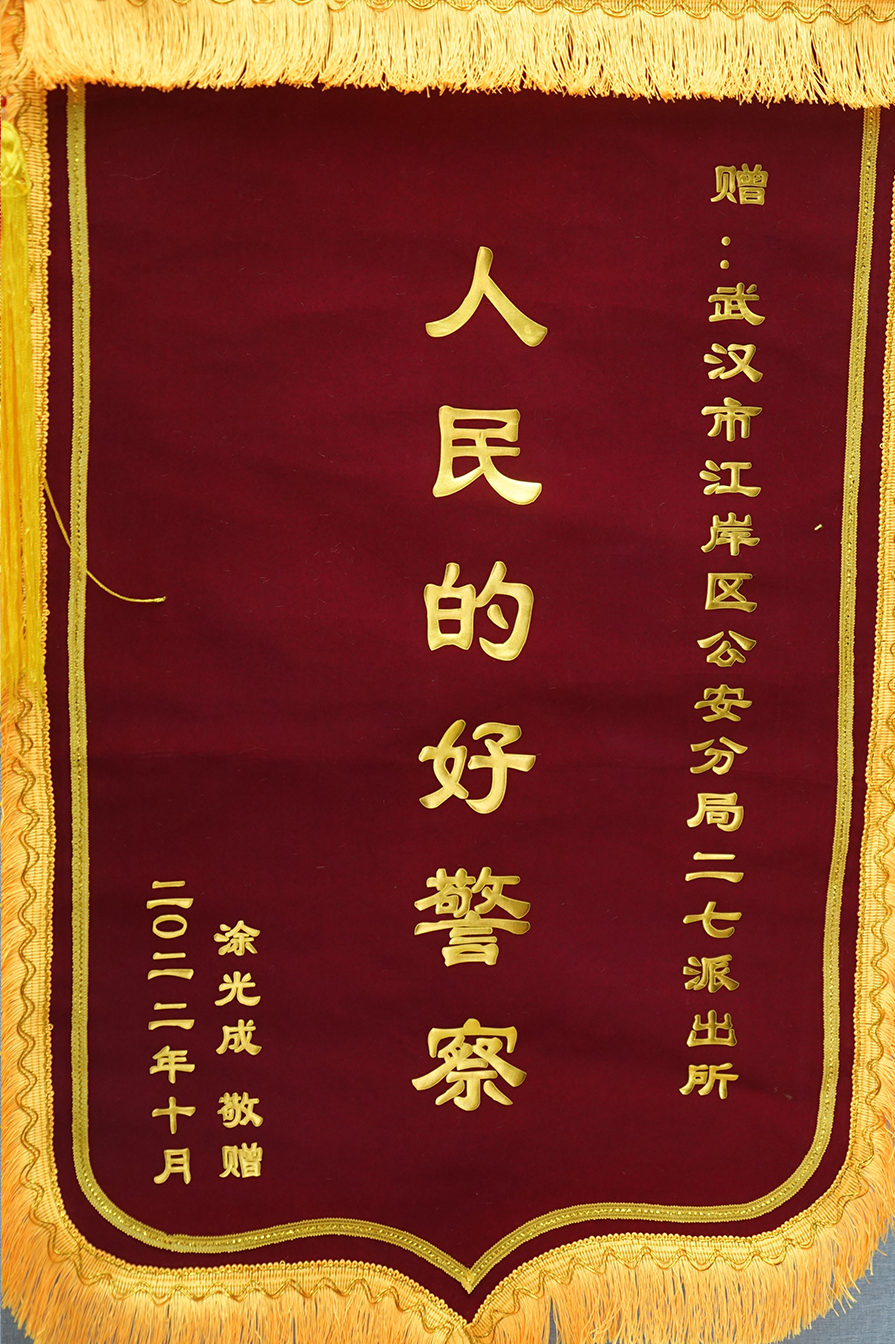 赠:武汉市江岸区公安分局二七派出所
人民的好警察
涂光成 敬赠
二〇二二年十月